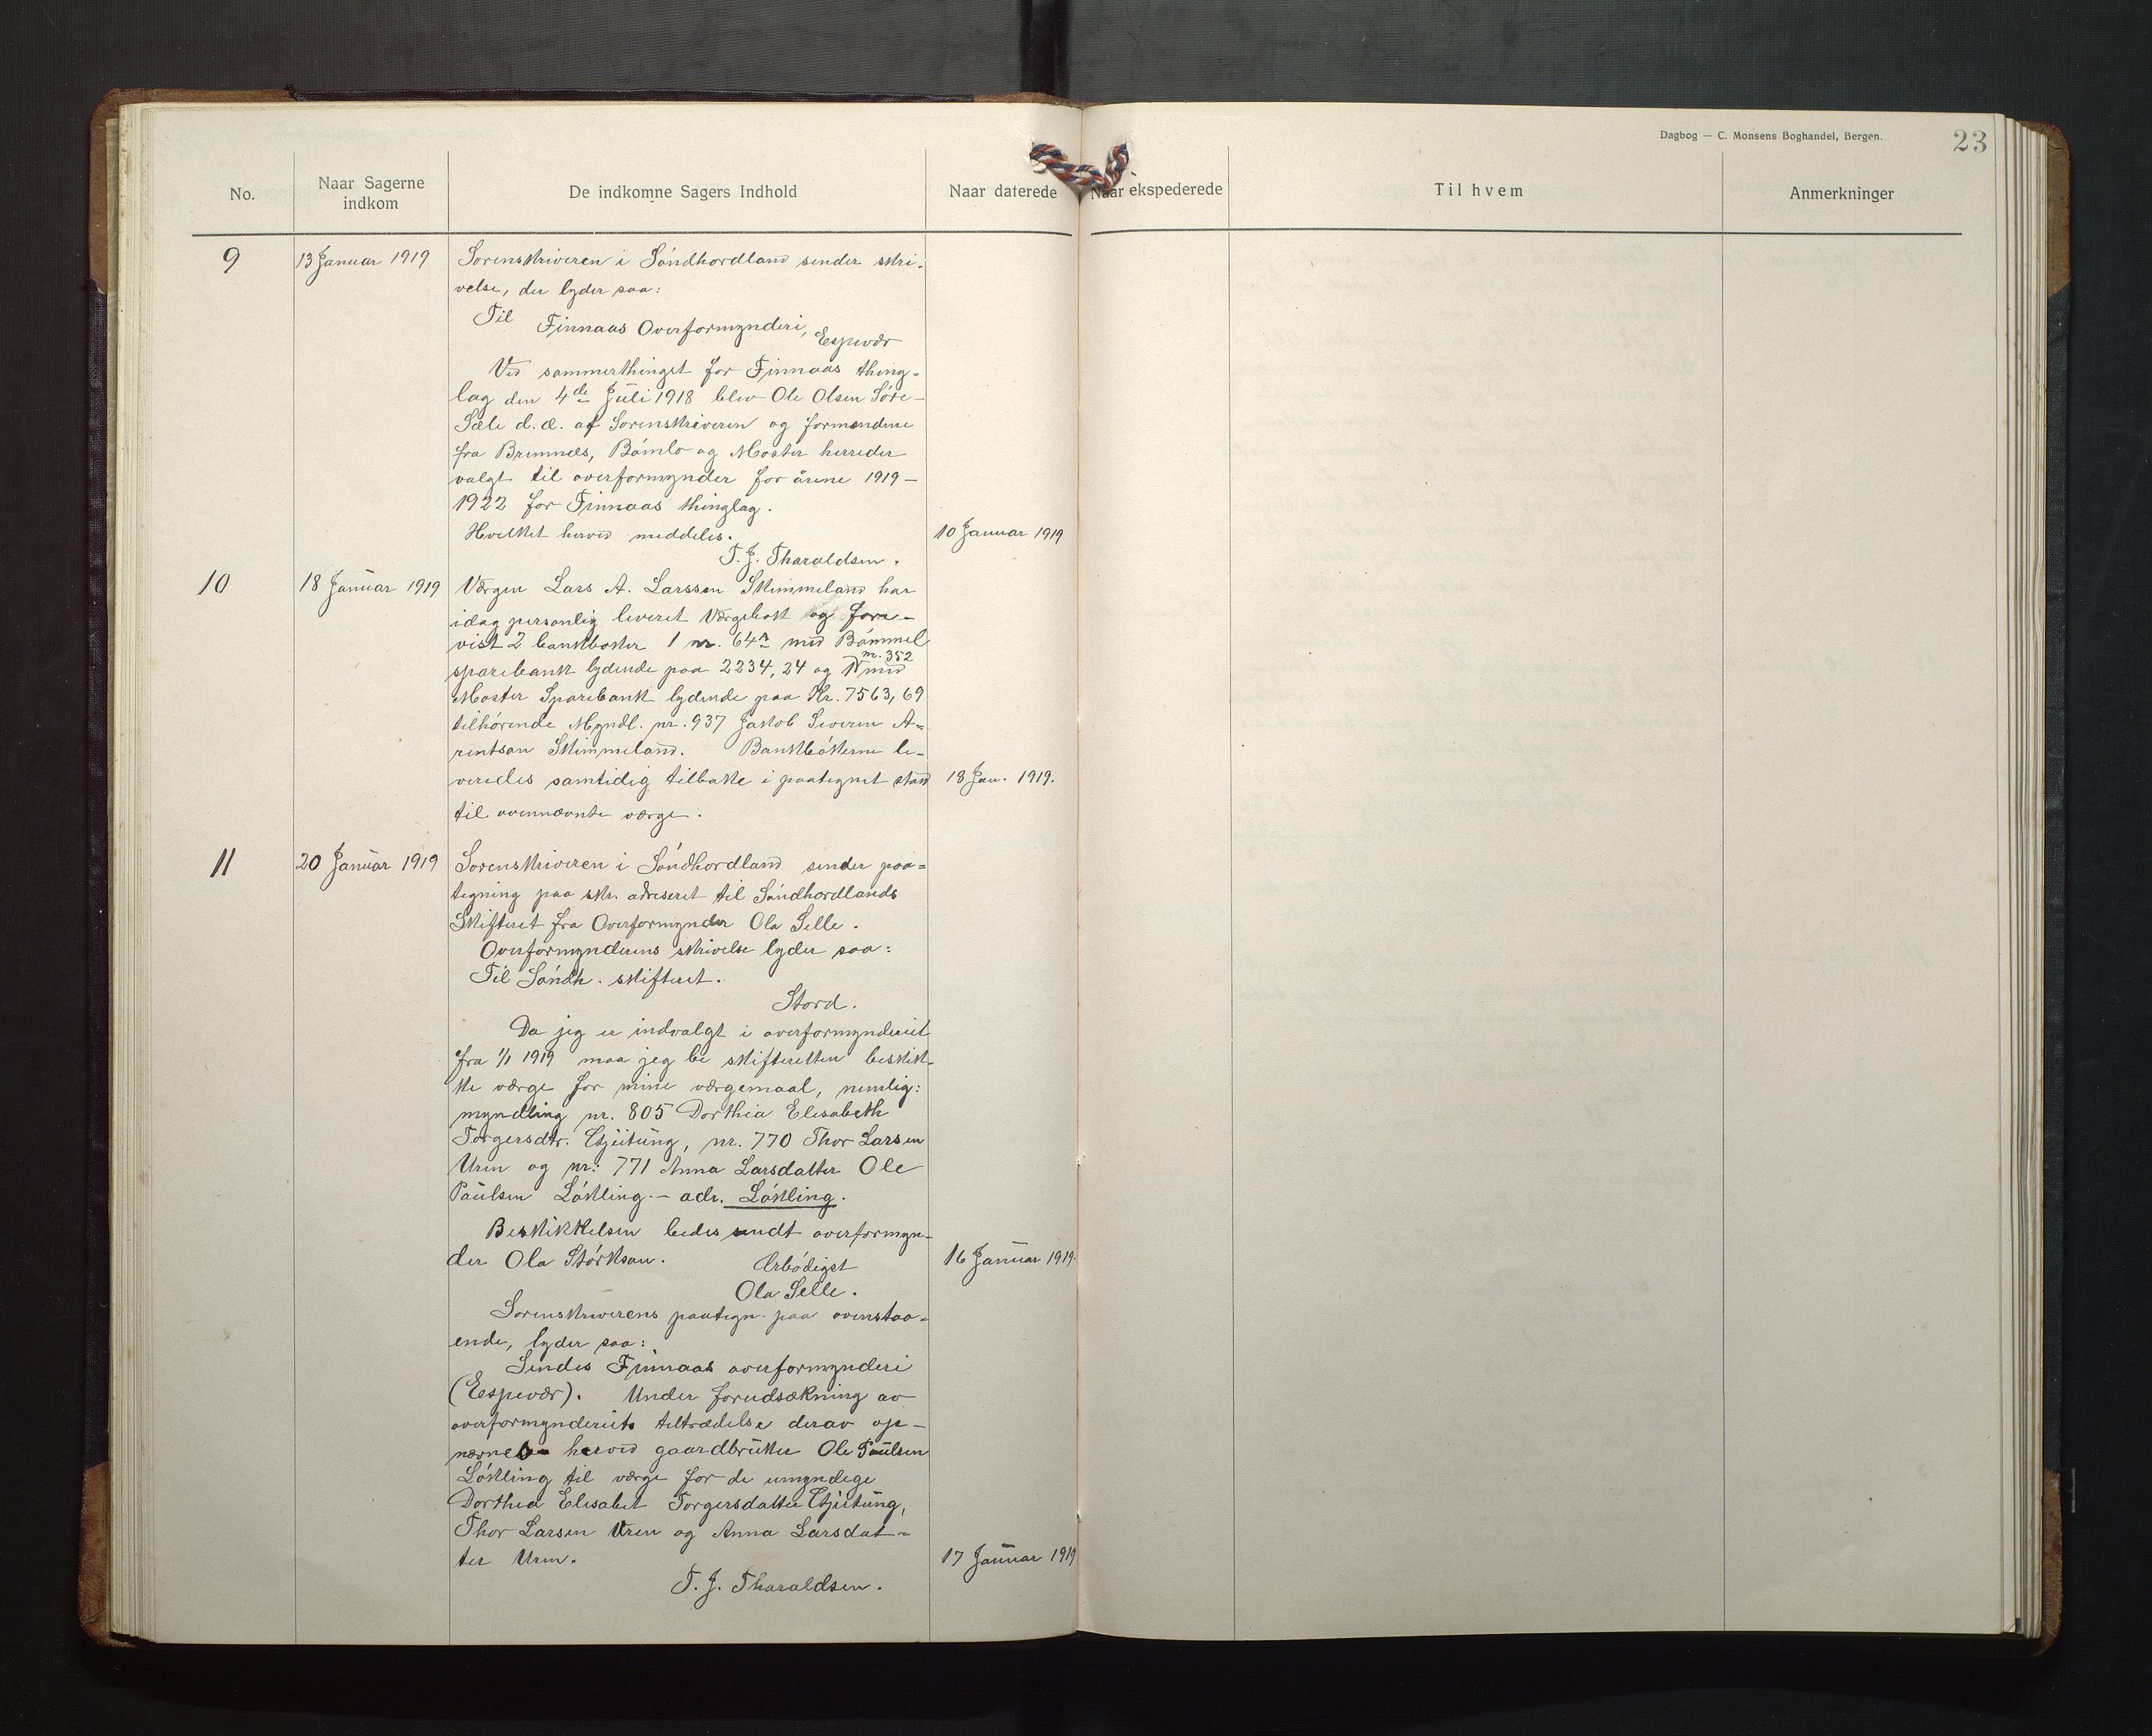 Dagbog — C. Monsens Boghandel, Bergen.
23
No.
Naar Sagerne indkom
De indkomne Sagers Indhold
Naar daterede
Naar ekspederede
Til hvem
Anmerkninger
9
13 Januar 1919
Sorenskriveren i Söndhordland sender skri-
velse, der lyder saa:
Til Finnaas Overformynderi,
Espevær
Ved sommerthinget for Finnaas thing-
lag den 4de Juli 1918 blev Ole Olsen Söre-
Sæle d.æ. af Sorenskriveren og formændene
fra Bremnes, Bömlo og Moster herreder
valgt til overformynder for årene 1919 –
1922 for Finnaas thinglag.
Hvilket herved meddeles.
10 Januar 1919
T. J. Tharaldsen.
10
18 Januar 1919
Værgen Lars A. Larssen Skimmeland har
idag personlig leveret Værgebok og fore-
vist 2 bankboker 1 nr. 64 med Bömmel
nr. 352
sparebank lydende paa 2234,24 og 1 med
Moster Sparebank lydende paa Kr. 7563,69
tilhörende Myndl. nr. 937 Jakob Severin A-
rentsen Skimmeland. Bankbökerne le-
veredes samtidig tilbake i paategnet stand
18 Jan. 1919.
til ovennævnte værge.
11
20 Januar 1919
Sorenskriveren i Söndhordland sender paa-
tegning paa skr. adreseret til Söndhordlands
Skifteret fra Overformynder Ola Selle.
Overformynderens skrivelse lyder saa:
Til Söndh. skifteret.
Stord.
Da jeg er indvalgt i overformynderiet
fra 1/1 1919 maa jeg be skifteretten beskik-
ke værge for mine værgemaal, nemlig:
myndling nr. 805 Dorthia Elisabeth
Torgersdtr. Gjeitung, nr. 770 Thor Larsen
Uren og nr: 771 Anna Larsdatter Ole
Paulsen Lökling. – adr. Lökling.
Beskikkelsen bedes sendt overformyn-
der Ola Störksen.
16 Januar 1919.
Ærbödigst
Ola Selle.
Sorenskriverens paategn. paa ovenstaa-
ende, lyder saa:
Sendes Finnaas overformynderi
(Espevær). Under forudsækning av
overformynderiets tiltrædelse derav op-
nævnes herved gaardbruker Ole Paulsen
Lökling til værge for de umyndige
Dorthea Elisabet Torgersdatter Gjeitung,
Thor Larsen Uren og Anna Larsdat-
ter Uren.
17 Januar 1919
T. J. Tharaldsen.